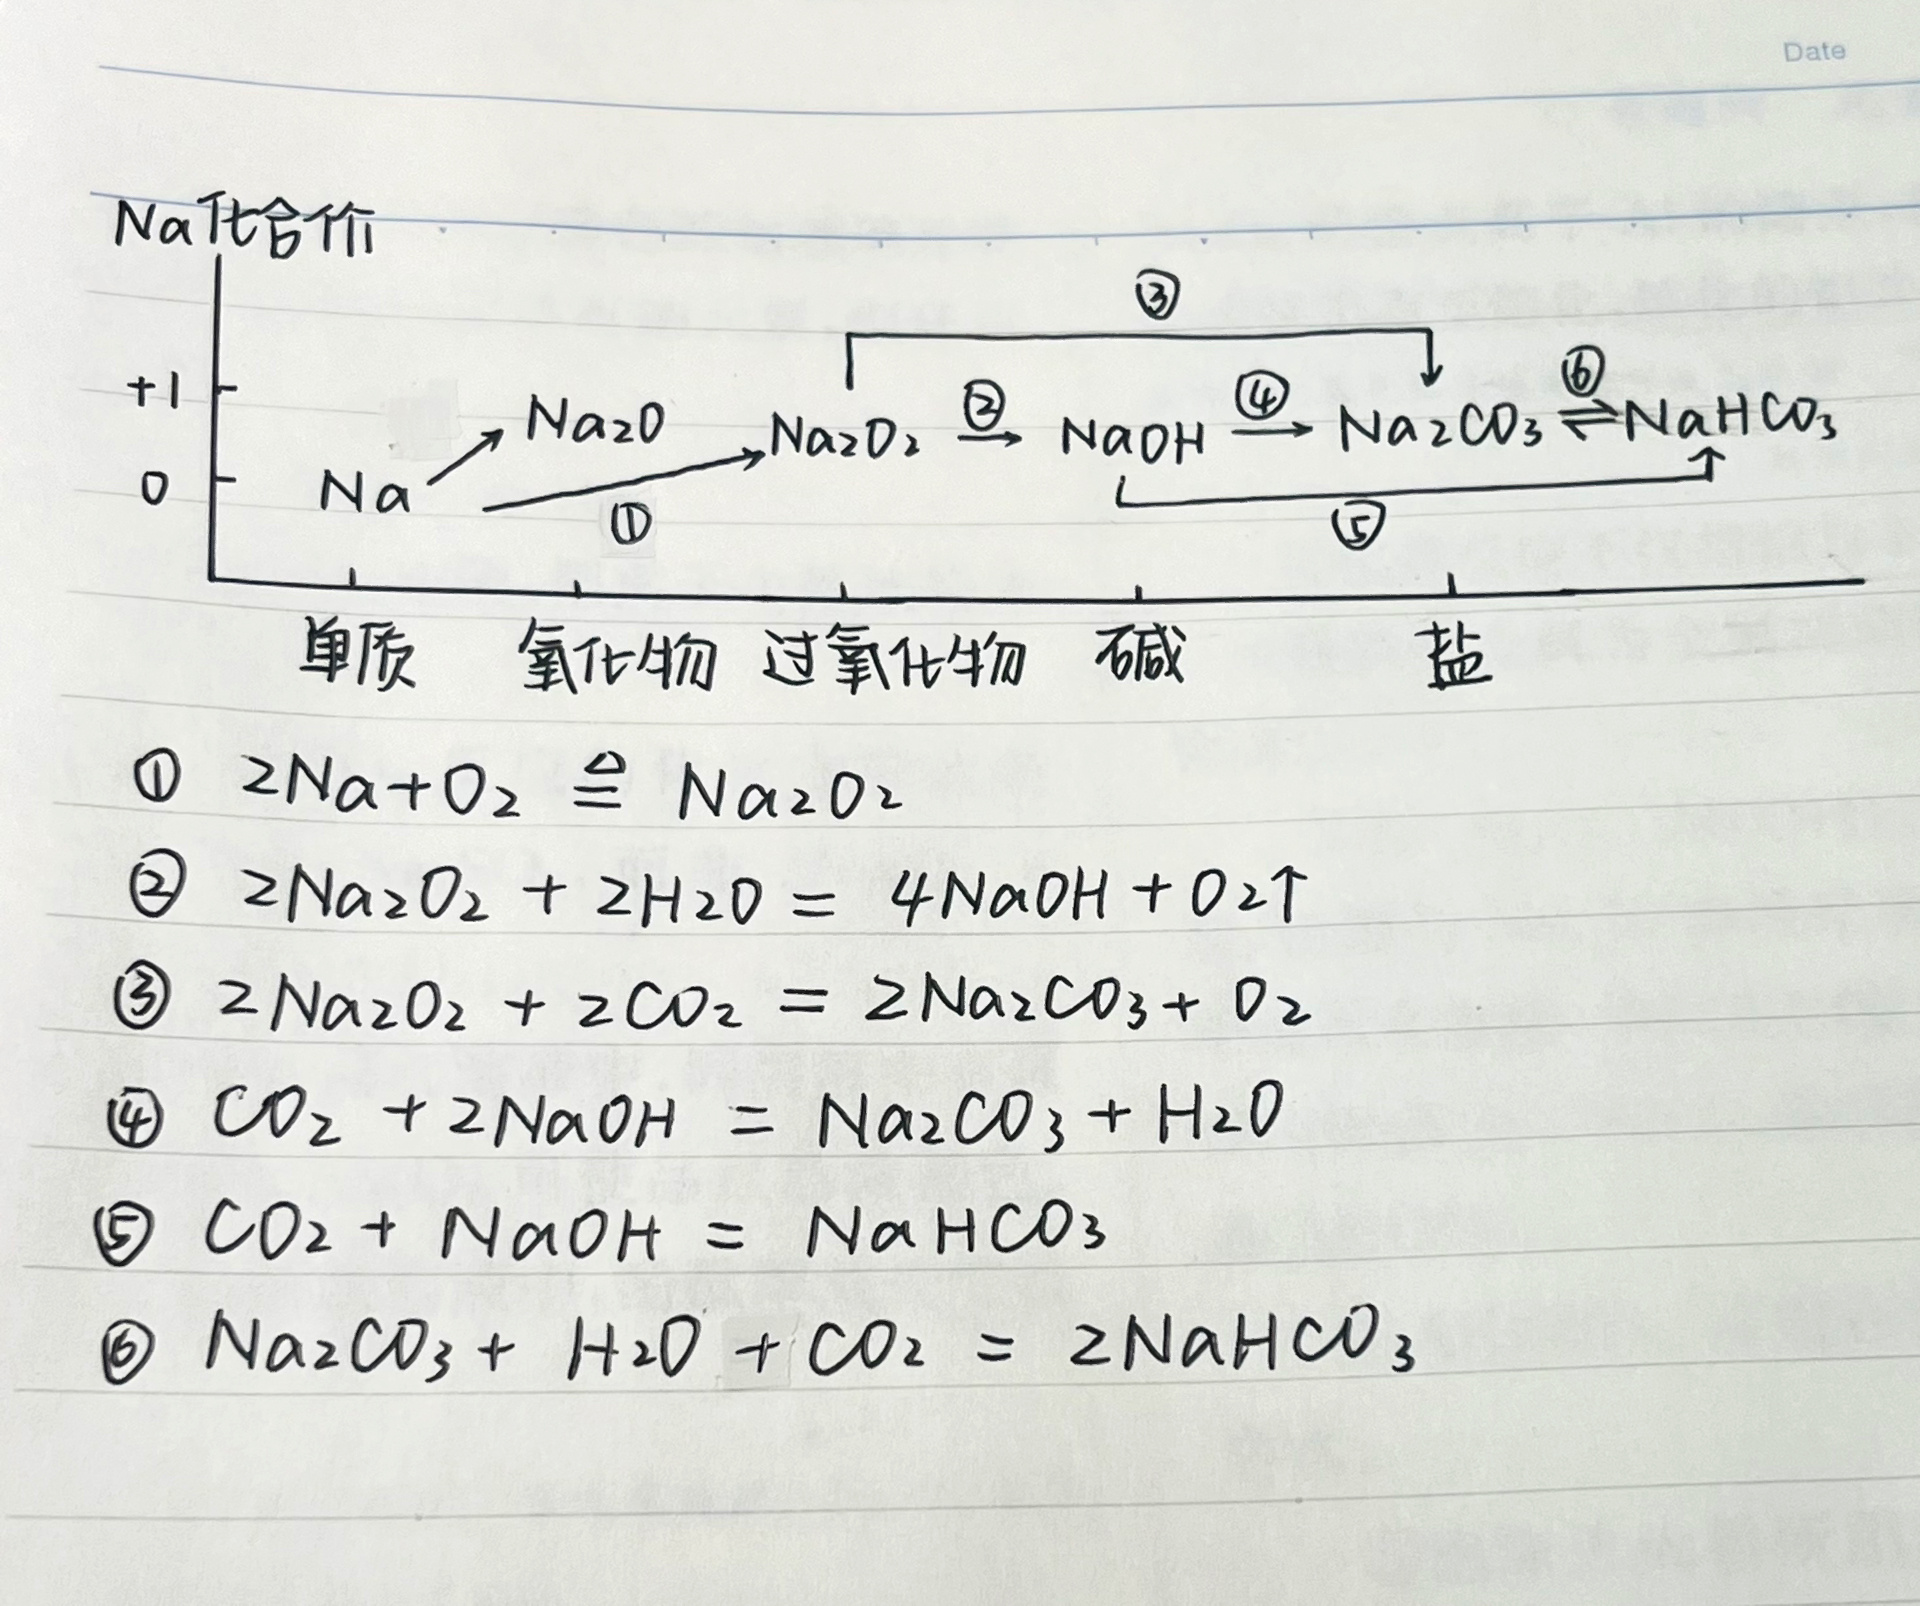 Date
Na化合价
③
+1 Na2O Na2O2 ② NaOH ④ Na2CO3 ⑥ ⇌ NaHCO3
0 Na ① ⑤
单质 氧化物 过氧化物 碱 盐
① 2Na+O2 ≜ Na2O2
② 2Na2O2 + 2H2O = 4NaOH + O2↑
③ 2Na2O2 + 2CO2 = 2Na2CO3 + O2
④ CO2 + 2NaOH = Na2CO3 + H2O
⑤ CO2 + NaOH = NaHCO3
⑥ Na2CO3 + H2O + CO2 = 2NaHCO3